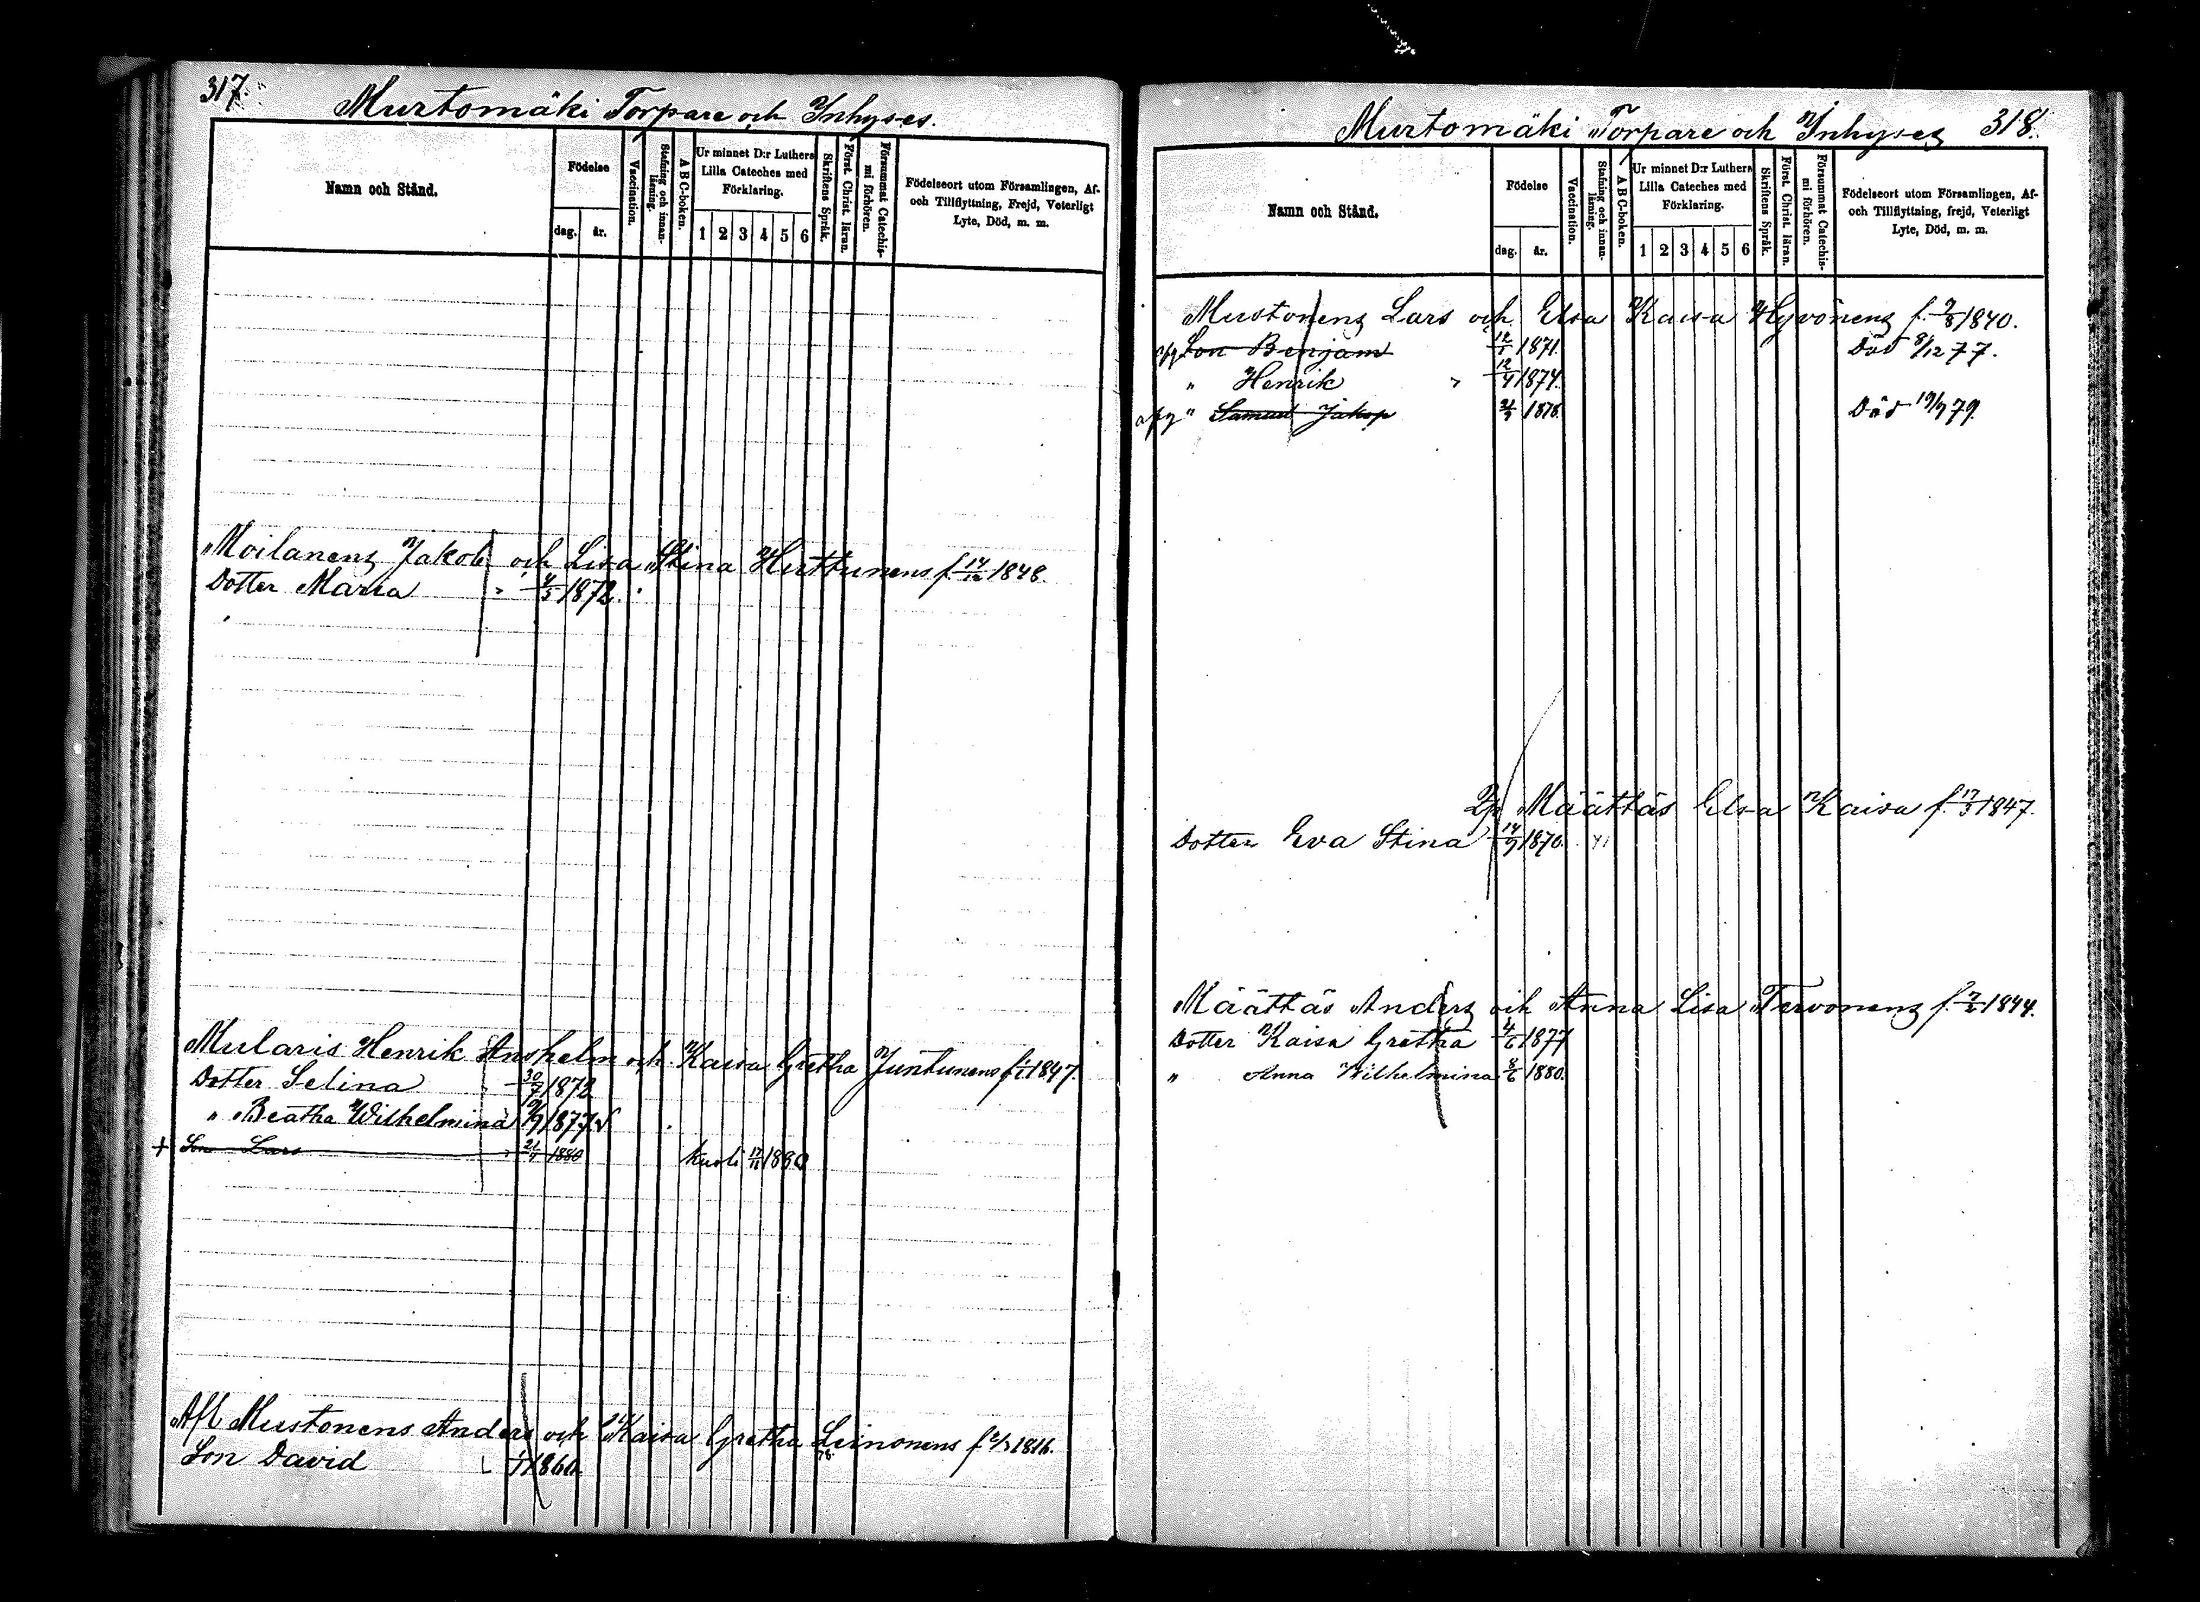 317.
Murtomäki Torpare och Inhyses.
Namn och Stånd.
Födelse
dag. år.
Vaccination.
Stafning och innan-
läsning.
A B C-boken.
Ur minnet D:r Luthers
Lilla Cateches med
Förklaring.
1 2 3 4 5 6
Skriftens Språk.
Först. Christ. läran.
Försummat Catechis-
mi förhören.
Födelseort utom Församlingen, Af-
och Tillflyttning, Frejd, Veterligt
Lyte, Död, m. m.
Moilanens Jakob och Lisa Stina Huttunens f. 14/12 1848.
Dotter Maria 4/5 1872.
Mularis Henrik Anshelm och Kaisa Gretha Juntunens f. 1/1 1847.
Dotter Selina 30/7 1872
" Beatha Wilhelmina 1877
+ Son Lars 21/4 1880 kuoli 1880
Afl. Mustonens Anders och Kaisa Gretha Leinonens f. 1816.
Son David 1860
Murtomäki Torpare och Inhyses 318.
Namn och Stånd.
Födelse
dag. år.
Vaccination.
Stafning och innan-
läsning.
A B C-boken.
Ur minnet D:r Luthers
Lilla Cateches med
Förklaring.
1 2 3 4 5 6
Skriftens Språk.
Först. Christ. läran.
Försummat Catechis-
mi förhören.
Födelseort utom Församlingen, Af-
och Tillflyttning, frejd, Veterligt
Lyte, Död, m. m.
Mustonens Lars och Elsa Kaisa Hyvönens f. 9/8 1840.
Son Benjam 1871. Död 8/12 77.
" Henrik 12/4 1874.
afg " Samuel Jakop 1878. Död 19/7 79.
Määttäs Elsa Kaisa f. 17/3 1847.
Dotter Eva Stina 14/9 1870.
Määttäs Anders och Anna Lisa Tervonens f. 1844.
Dotter Kaisa Gretha 4/6 1877
" Anna Wilhelmina 8/6 1880.